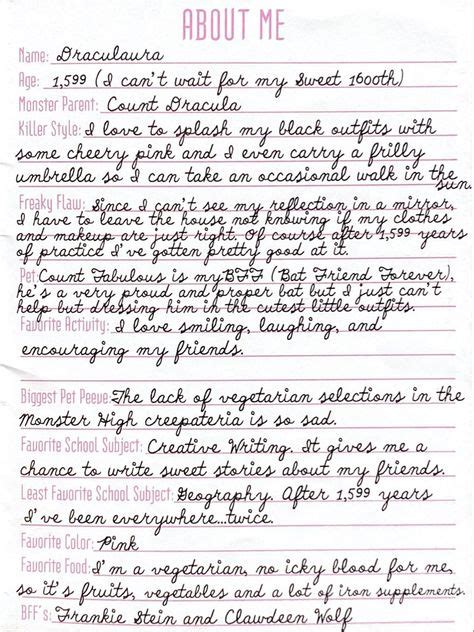 ABOUT ME
Name: Draculaura
Age: 1,599 (I can't wait for my Sweet 1600th)
Monster Parent: Count Dracula
Killer Style: I love to splash my black outfits with
some cheery pink and I even carry a frilly
umbrella so I can take an occasional walk in the
sun.
Freaky Flaw: Since I can't see my reflection in a mirror,
I have to leave the house not knowing if my clothes
and makeup are just right. Of course after 1,599 years
of practice I've gotten pretty good at it.
Pet: Count Fabulous is my BFF (Bat Friend Forever),
he's a very proud and proper bat but I just can't
help but dressing him in the cutest little outfits.
Favorite Activity: I love smiling, laughing, and
encouraging my friends.
Biggest Pet Peeve: The lack of vegetarian selections in the
Monster High creepateria is so sad.
Favorite School Subject: Creative Writing. It gives me a
chance to write sweet stories about my friends.
Least Favorite School Subject: Geography. After 1,599 years
I've been everywhere...twice.
Favorite Color: Pink
Favorite Food: I'm a vegetarian, no icky blood for me,
so it's fruits, vegetables and a lot of iron supplements.
BFF's: Frankie Stein and Clawdeen Wolf